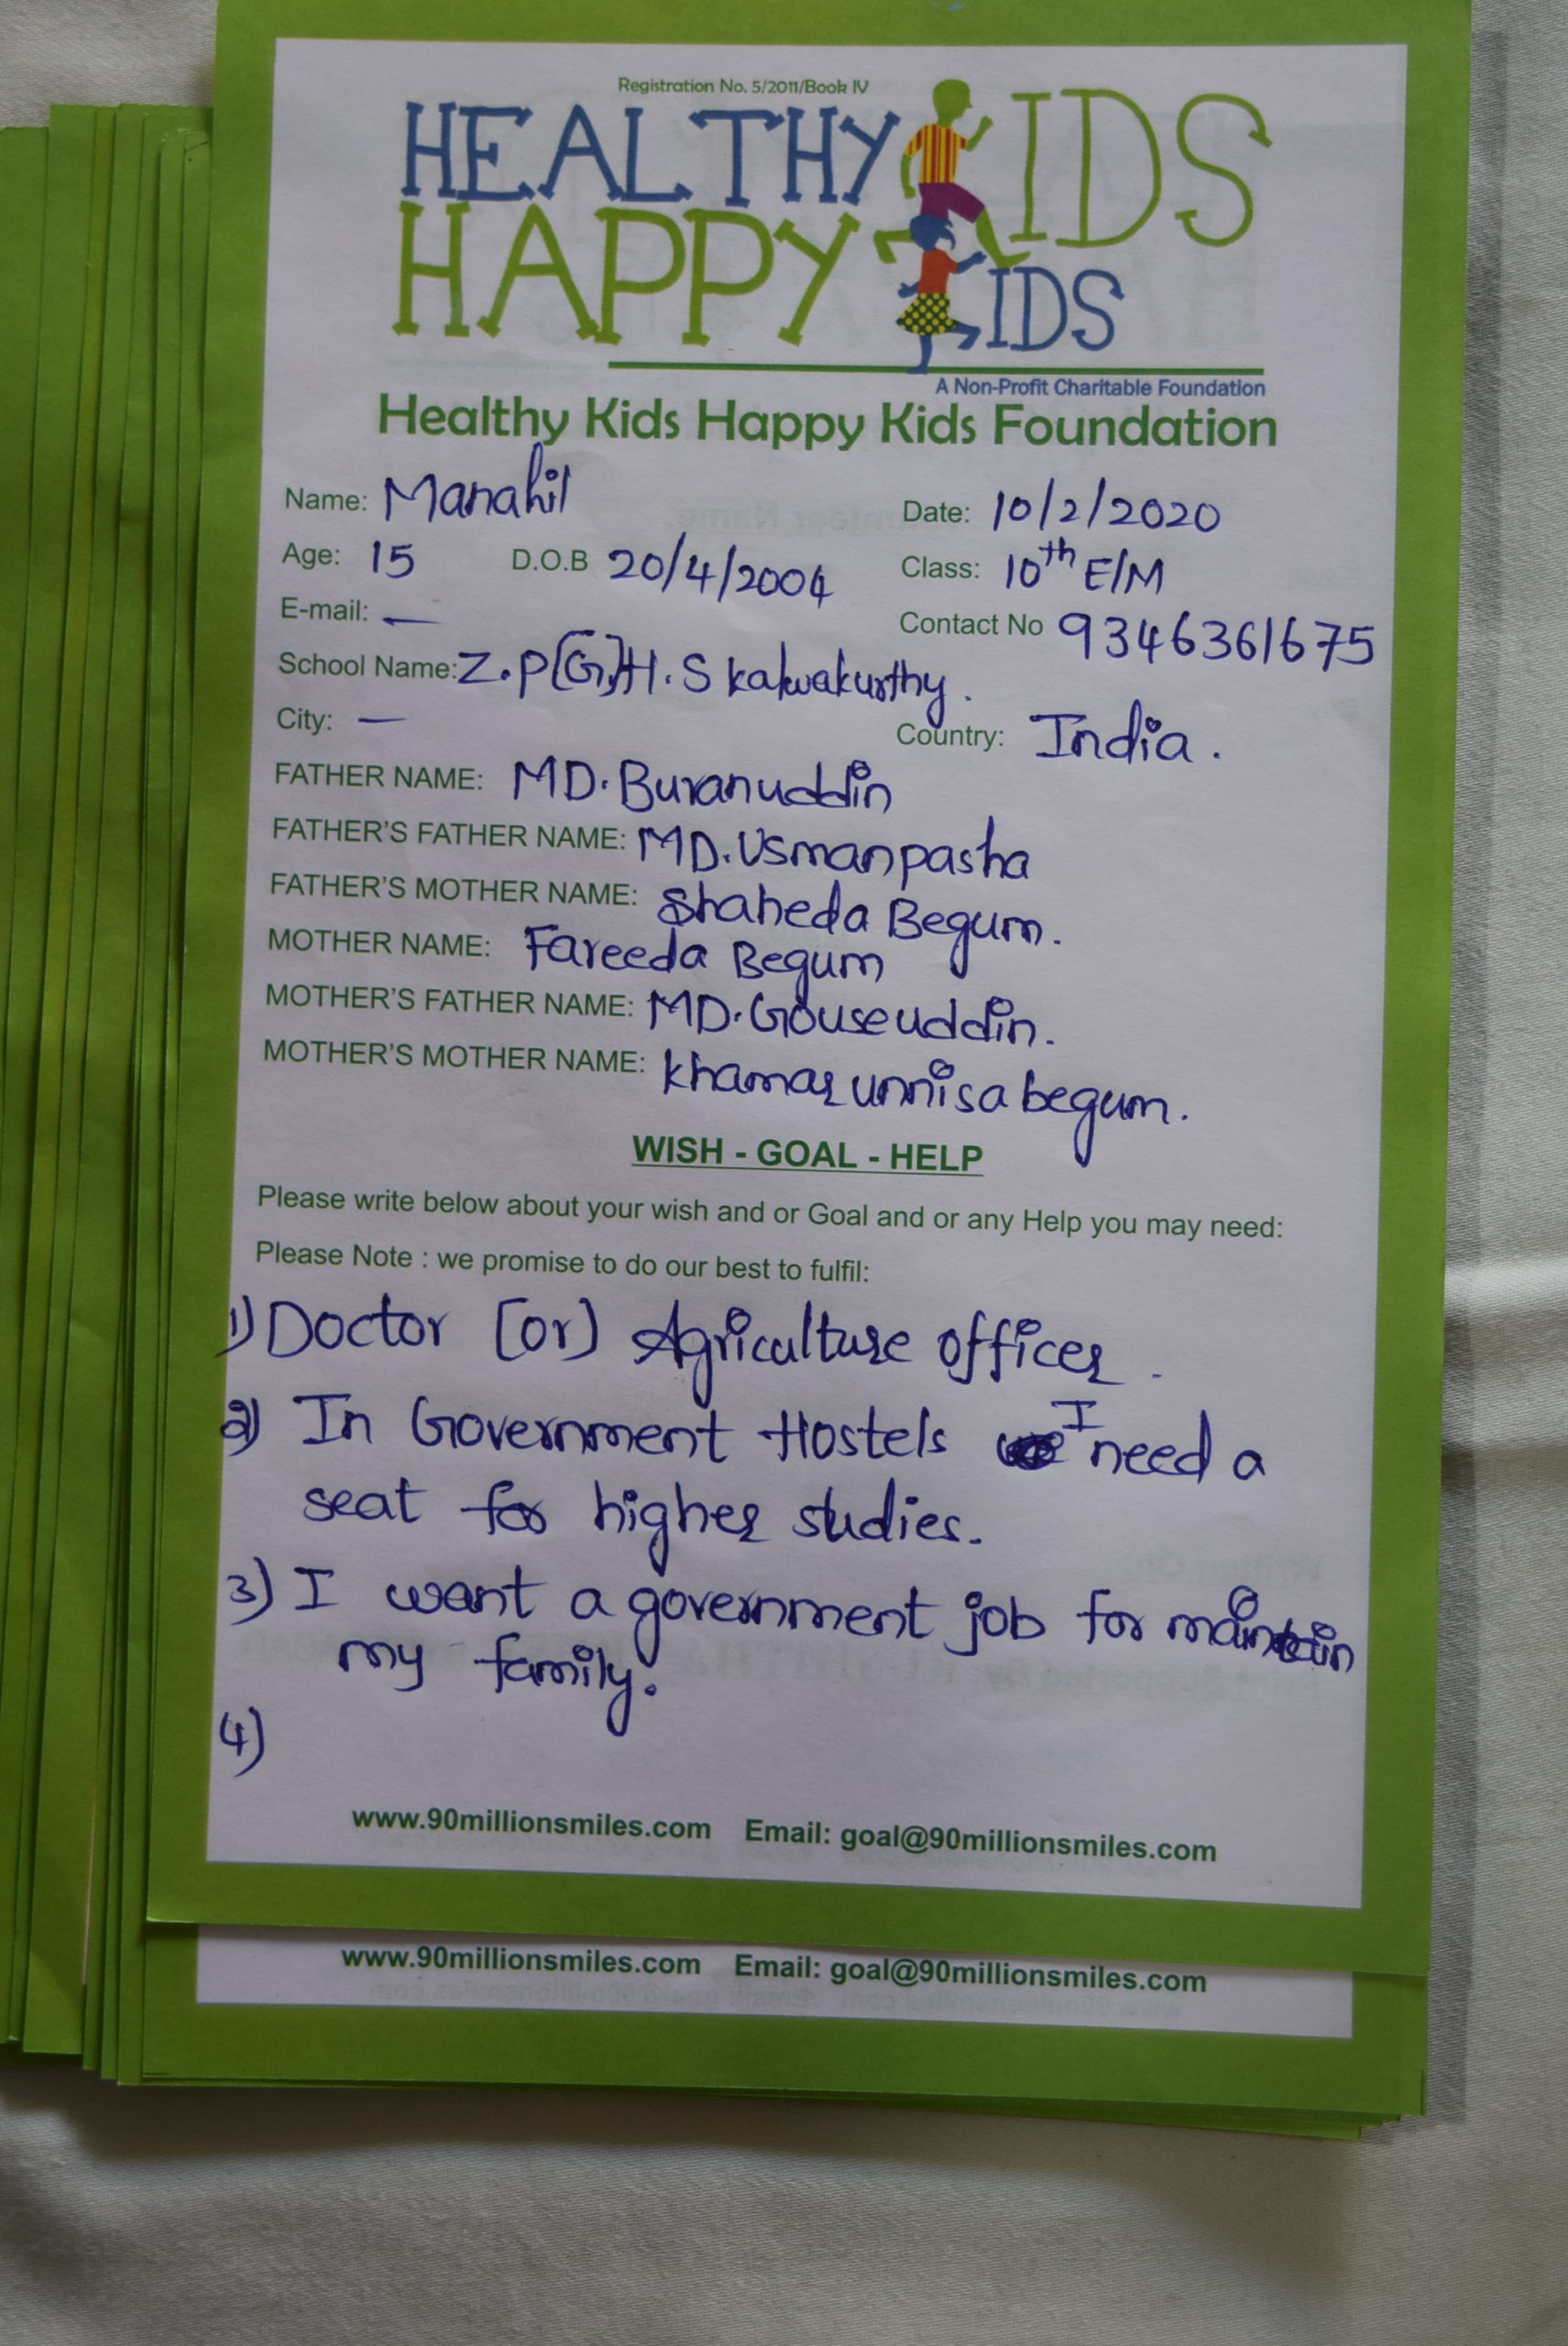 Registration No. 5/2011/Book IV
HEALTHY KIDS
HAPPY KIDS
A Non-Profit Charitable Foundation
Healthy Kids Happy Kids Foundation
Name: Manahil Date: 10/2/2020
Age: 15 D.O.B 20/4/2004 Class: 10th E/M
E-mail: — Contact No 9346361675
School Name: Z.P[G]H.S kalwakurthy.
City: — Country: India.
FATHER NAME: MD. Buranuddin
FATHER'S FATHER NAME: MD. Usmanpasha
FATHER'S MOTHER NAME: Shaheda Begum.
MOTHER NAME: Fareeda Begum
MOTHER'S FATHER NAME: MD. Gouseuddin.
MOTHER'S MOTHER NAME: khamar unnisa begum.
WISH - GOAL - HELP
Please write below about your wish and or Goal and or any Help you may need:
Please Note : we promise to do our best to fulfil:
1) Doctor [or] Agriculture officer.
2) In Government Hostels I need a
seat for higher studies.
3) I want a government job for maintain
my family.
4)
www.90millionsmiles.com Email: goal@90millionsmiles.com
www.90millionsmiles.com Email: goal@90millionsmiles.com